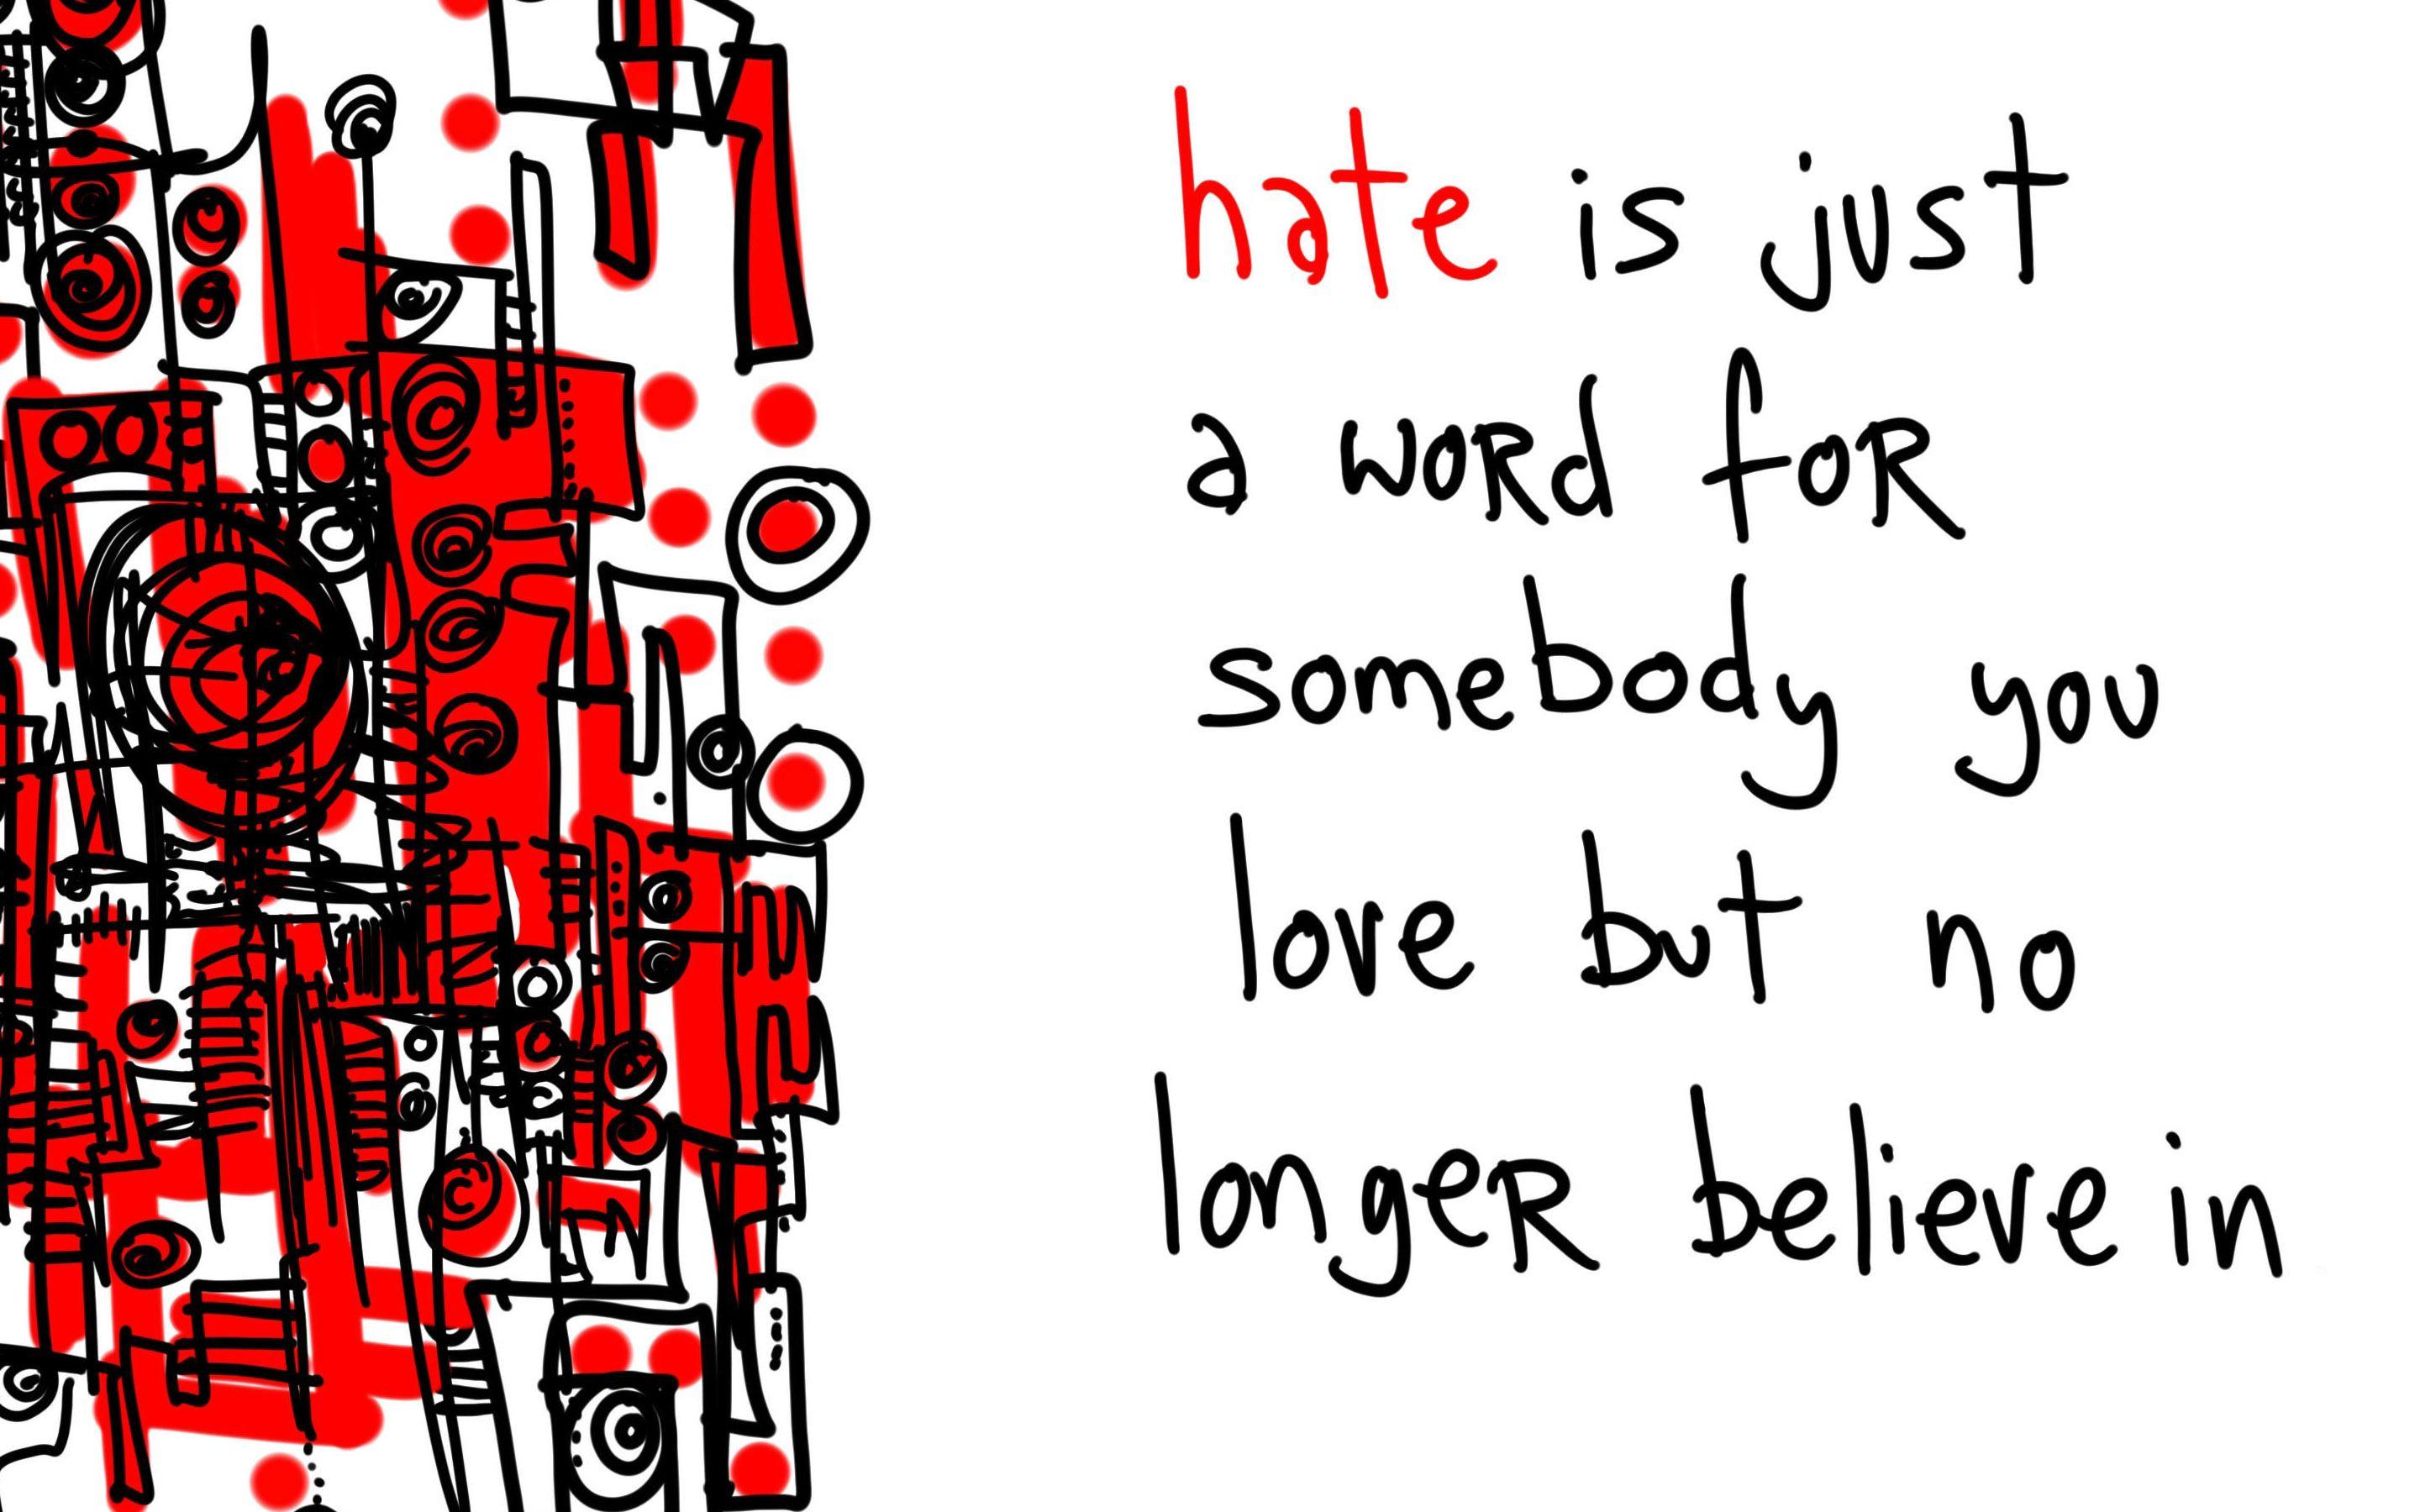 hate is just
a word for
somebody you
love but no
longer believe in